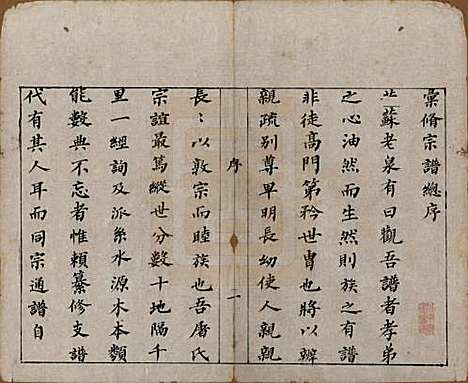 彙脩宗譜總序
昔蘇老泉有曰觀吾譜者孝弟
之心油然而生然則族之有譜
非徒高門第矜世胄也將以辨
親疏别尊卑明長幼使人親親
序
一
長〻以敦宗而睦族也吾屠氏
宗誼最篤縱世分數十地隔千
里一經詢及派系水源木本類
能數典不忘者惟賴纂修支譜
代有其人耳而同宗通譜自